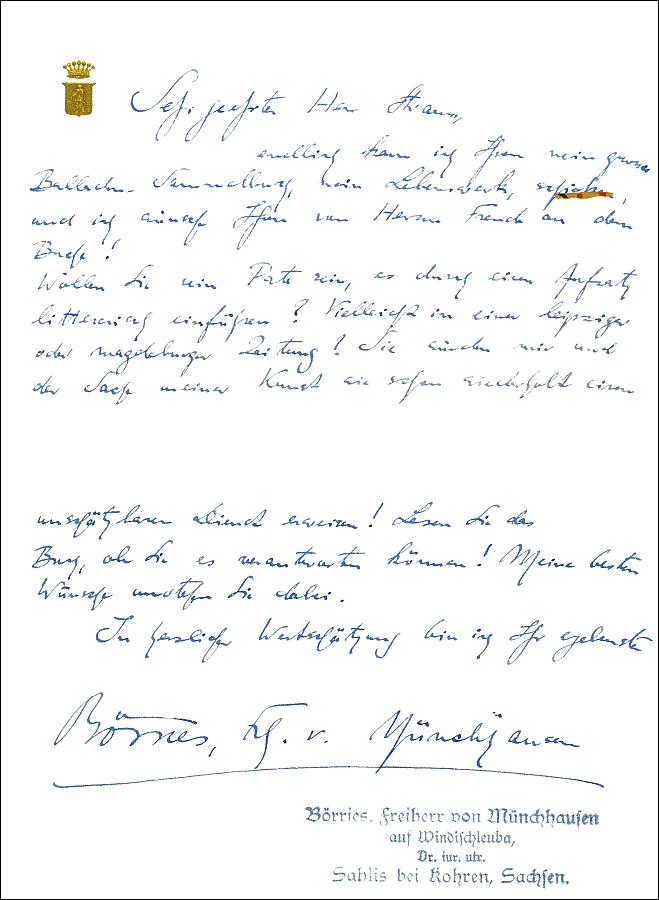 Sehr geehrter Herr Strauss,
endlich kann ich Ihnen mein grosses
Balladen-Sammelburg, mein Lebenswerk,
und ich wünsche Ihnen von Herzen Freude an dem
Buche!
Wollen Sie sein Pate sein, es durch einen Aufsatz
litterarisch einführen? Vielleicht in einer leipziger
oder magdeburger Zeitung? Sie würden mir und
der Sache meiner Kunst wie schon wiederholt einen
unschätzbaren Dienst erweisen! Lesen Sie das
Buch, ob Sie es verantworten können! Meine besten
Wünsche Sie dabei.
In herzlicher Wertschätzung bin ich Ihr ergebenster
Börries, Frh. v. Münchhausen
Börries, Freiherr von Münchhausen
auf Windischleuba,
Dr. iur. utr.
Sahlis bei Kohren, Sachsen.